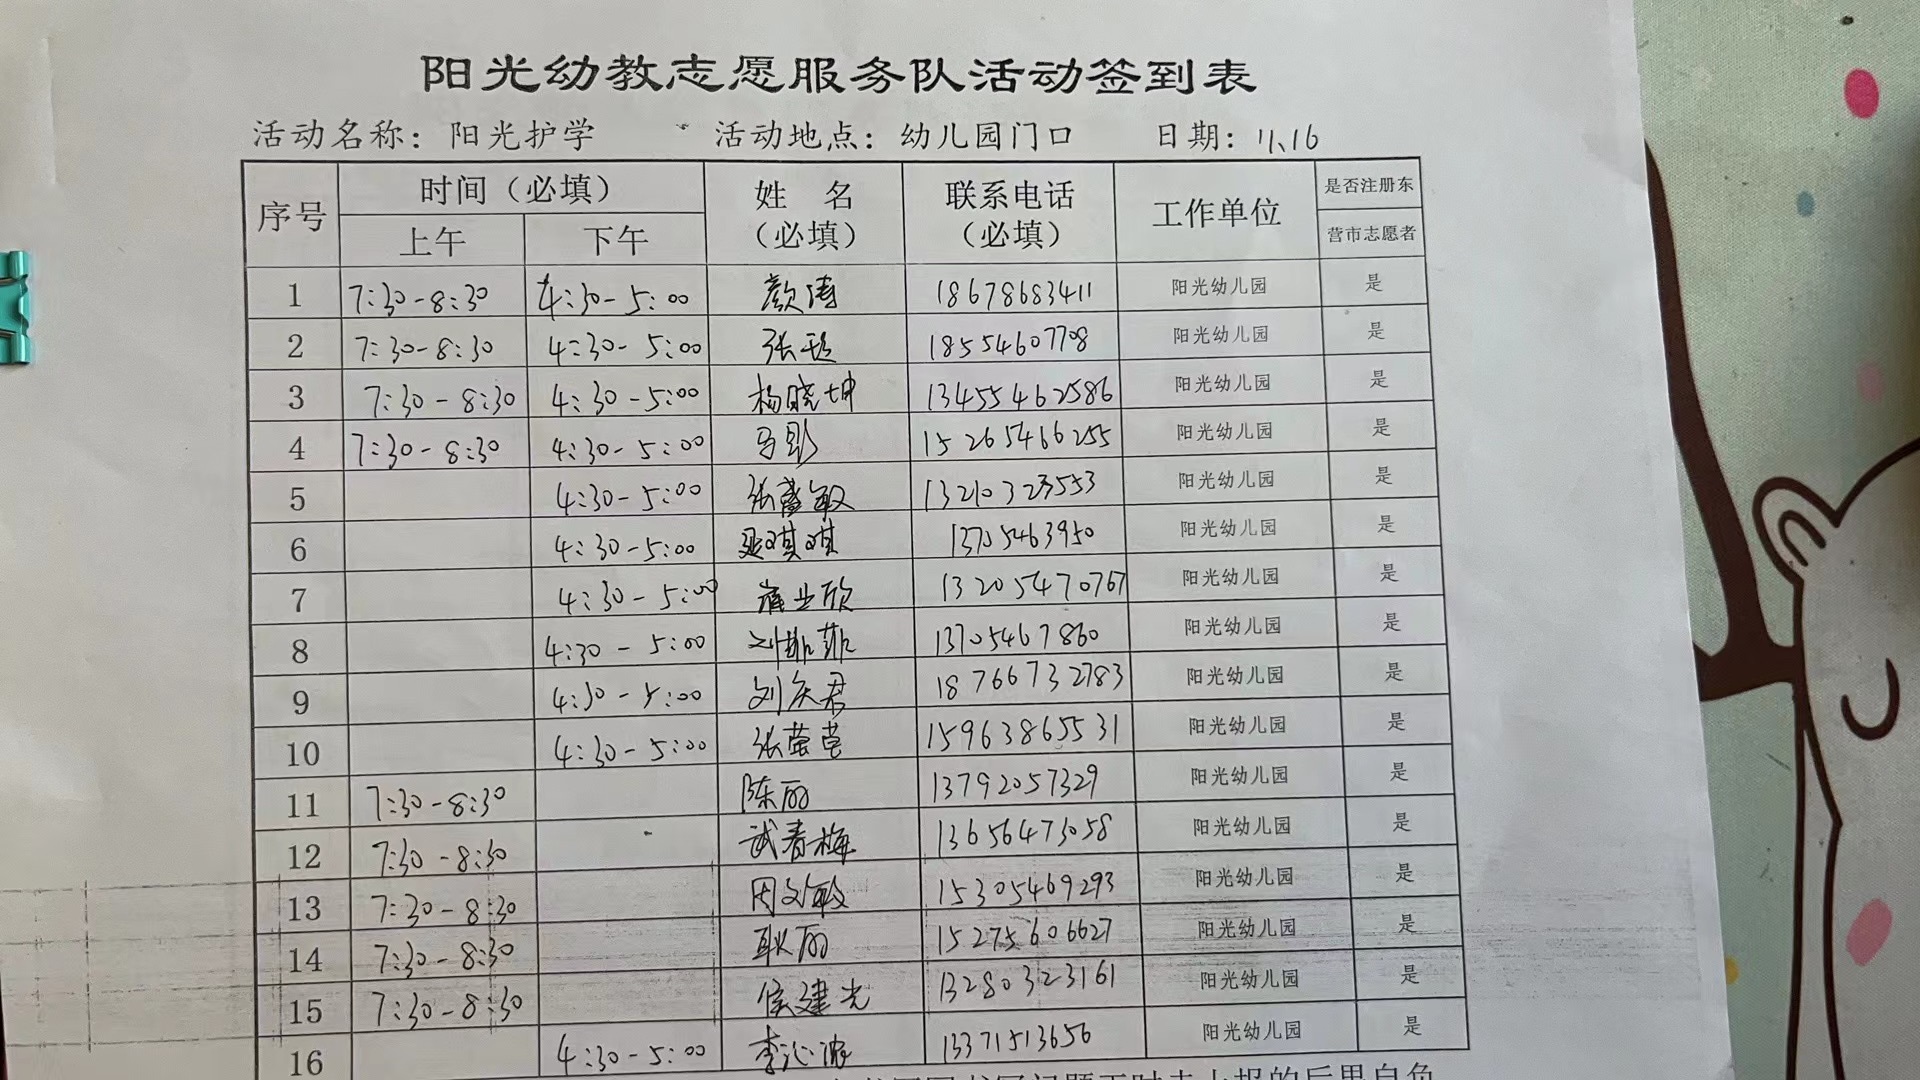 阳光幼教志愿服务队活动签到表
活动名称：阳光护学 活动地点：幼儿园门口 日期：11、16
序号 时间（必填） 姓 名（必填） 联系电话（必填） 工作单位 是否注册东营市志愿者
上午 下午
1 7:30-8:30 4:30-5:00 颜涛 18678683411 阳光幼儿园 是
2 7:30-8:30 4:30-5:00 张 18554607708 阳光幼儿园 是
3 7:30-8:30 4:30-5:00 杨晓坤 13455462586 阳光幼儿园 是
4 7:30-8:30 4:30-5:00 马影 15265466255 阳光幼儿园 是
5 4:30-5:00 张敏 13210323553 阳光幼儿园 是
6 4:30-5:00 琪琪 13705463950 阳光幼儿园 是
7 4:30-5:00 崔业欣 13205470767 阳光幼儿园 是
8 4:30-5:00 刘菲菲 13705467860 阳光幼儿园 是
9 4:30-5:00 刘庆君 18766732783 阳光幼儿园 是
10 4:30-5:00 张莹莹 15963865531 阳光幼儿园 是
11 7:30-8:30 陈丽 13792057329 阳光幼儿园 是
12 7:30-8:30 试春梅 13656473058 阳光幼儿园 是
13 7:30-8:30 周文敏 15305469293 阳光幼儿园 是
14 7:30-8:30 耿丽 15275606627 阳光幼儿园 是
15 7:30-8:30 侯建光 13280323161 阳光幼儿园 是
16 4:30-5:00 李沁 13371513656 阳光幼儿园 是